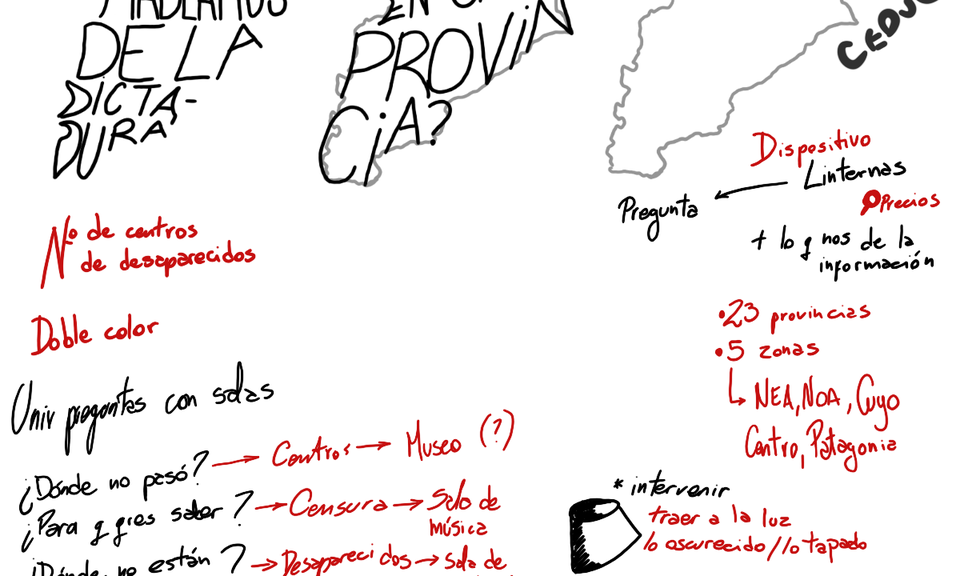 HABLAMOS
DE LA
DICTA-
DURA
EN
PROVIN
CIA?
Dispositivo
Linternas
Pregunta
Precios
+ lo q nos de la
información
Nº de centros
Nº de desaparecidos
Doble color
• 23 provincias
• 5 zonas
NEA, NOA, Cuyo
Centro, Patagonia
Unir preguntas con salas
¿Dónde no pasó? → Centros → Museo (?)
¿Para q qres saber? → Censura → Sala de
música
¿Dónde no están? → Desaparecidos → sala de
* intervenir
traer a la luz
lo oscurecido//lo tapado